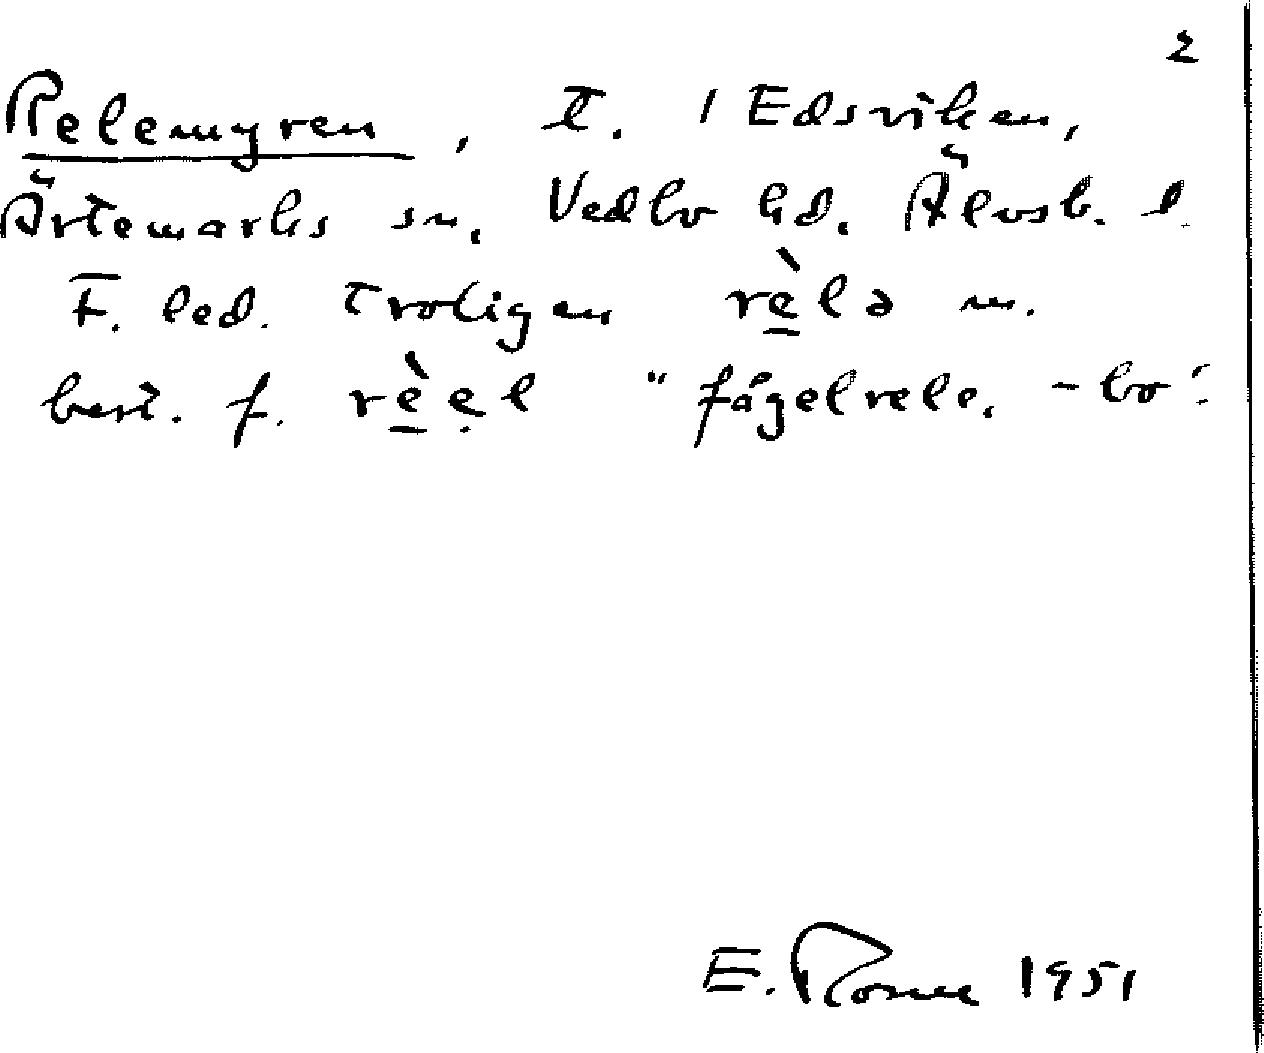 2
Relemyren, t. / Edsviken,
Ärtemarks sn, Vedbo hd. Älvsb. l.
F. led. troligen rèlə m.
best. f. rèẹl "fågelrele, -bo".
E. 1951